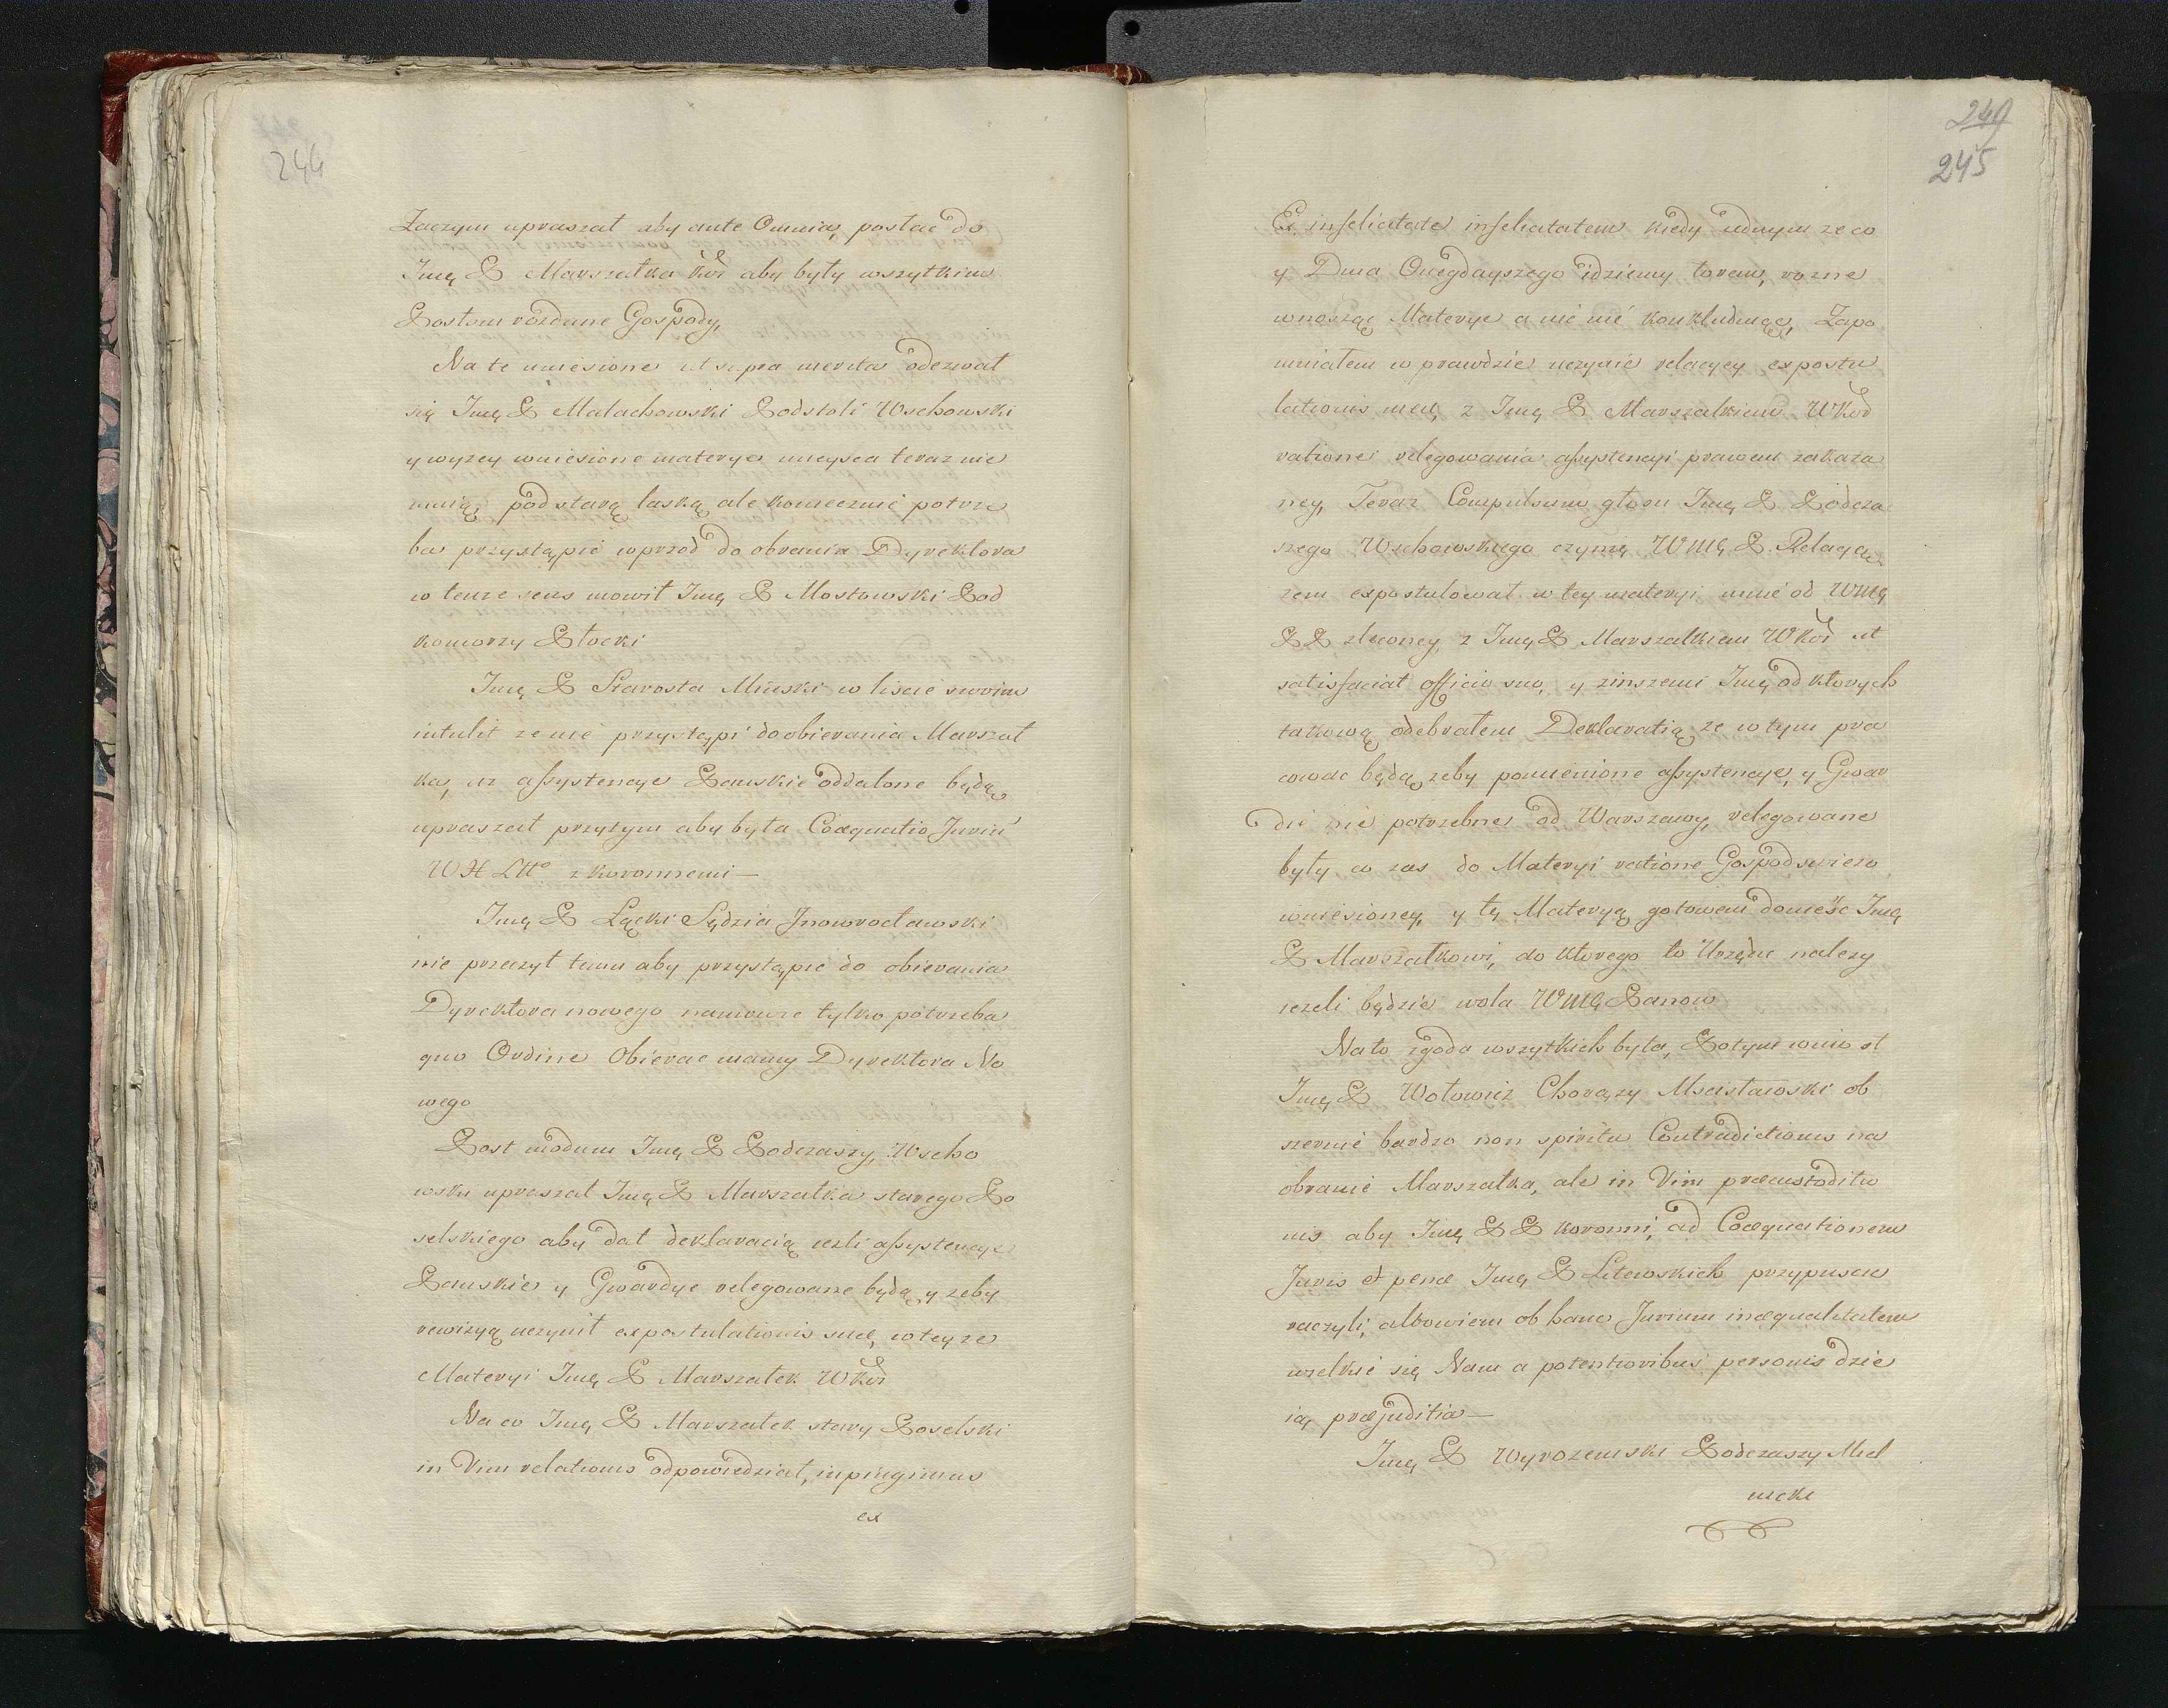 244
Zaczym upraszał aby ante Omnia, posłac do
Imę P Marszałka Kor aby były wszytkim
Posłom rozdane Gospody,
Na te wniesione ut supra merita odezwał
się Imę P Małachowski Podstoli Wschowski
y wyzey wniesione materye mieysca teraz nie
maią, pod starą laską, ale koniecznie potrze
ba przystąpić wprzod do obrania Dyrektora
w tenze sens mowił Imę P Mostowski Pod
komorzy Płocki
Imę P Starosta Minski w liscie swoim
intulit ze nie przystąpi do obierania Marszał
ka, az assystencye Panskie oddalone będą,
upraszał przytym aby była Coæquatio Jurium
W X Litt° z koronnemi —
Imę P Łącki Sędzia Jnowrocławski
nie przeczył temu aby przystąpic do obierania
Dyrektora nowego namowic tylko potrzeba
quo Ordine Obierac mamy Dyrektora No
wego
Post modum Imę P Podczaszy, Wscho
wski upraszał Imę P Marszałka starego Po
selskiego aby dał deklaracią iezli assystencye
Panskie y Gwardye relegowane będą, y zeby
rewizyą uczynił expostulationis suæ, w teyze
Materyi Imę P Marszałek W Kor
Na co Imę P Marszałek stary Poselski
in Vim relationis odpowiedział, inpingimus
ex
249
245
Ex infelicitate infelicitatem kiedy iednym ze co
y Dnia Onegdayszego idziemy torem, rozne
wnosząc Materye a nic nié konkluduiąc, Zapo
mniałem w prawdzie uczynić relacyey expostu
lationis meæ, z Imę P Marszałkiem W Kor
ratione relegowania assystencyi prawem zakaza
ney, Teraz Compulsum głosu Imę P Podcza
szego Wschowskiego czynię WMę P Relacyą
zem expostulował w tey materyi mnie od WMę
P P zleconey, z Imę P Marszałkiem W Kor ut
satisfaciat officio suo, y zinszemi Imę, od ktorych
takową odebrałem Deklaratią, ze w tym pra
cowac będą, zeby pomienione assystencye, y Gwar
die nie potrzebne od Warszawy, relegowane
były co zas do Materyi ratione Gospod swiezo
wniesioney, y tę Materyą gotowem donieść Imę
P Marszałkowi, do ktorego to Urzędu nalezy
iezeli będzie wola WMę Panow
Na to zgoda wszytkich była, Potym wnio sł
Imę P Wołowicz Chorązy Mscisławski ob
szernie bardzo non spiritu Contradictionis na
obranié Marszałka, ale in Vim præcustoditio
nis aby Imę P P koronni, ad Coæquationem
Juris et penæ Imę P Litewskich przypuscic
raczyli, albowiem ob hanc Jurium inæqualitatem
wielkié się Nam a potentioribus personis dzie
ią, præjuditia —
Imę P Wyrozemski Podczaszy Miel
nicki